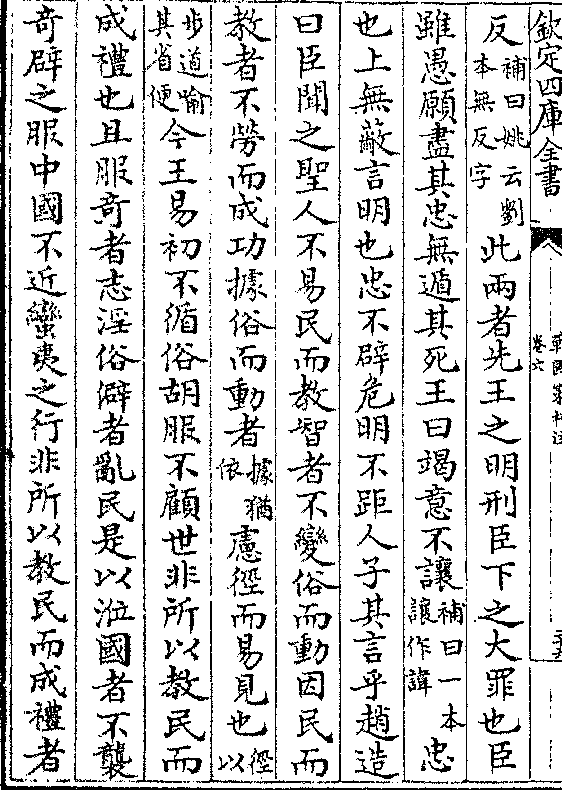 欽定四庫全書
戰國策校注
卷六
反補曰姚云劉本無反字此兩者先王之明刑臣下之大罪也臣
雖愚願盡其忠無遁其死王曰竭意不讓補曰一本讓作諱忠
也上無蔽言明也忠不辟危明不距人子其言乎趙造
曰臣聞之聖人不易民而教智者不變俗而動因民而
教者不勞而成功據俗而動者據猶依慮徑而易見也徑以
步道喻其省便今王易初不循俗胡服不顧世非所以教民而
成禮也且服奇者志淫俗僻者亂民是以涖國者不襲
奇辟之服中國不近蠻夷之行非所以教民而成禮者